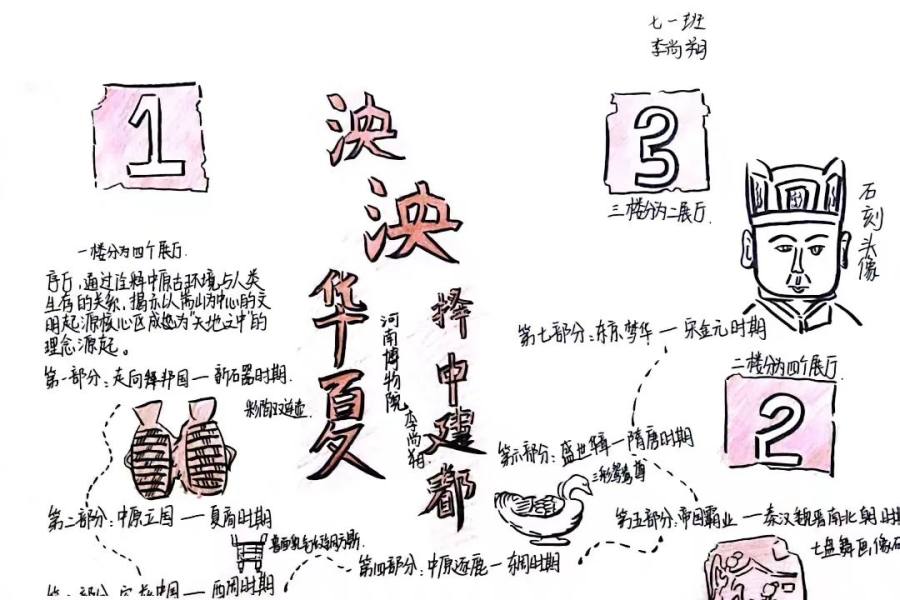 七一班
李尚翔
1
泱泱华夏
择中建都
河南博物院
李尚翔
3
三楼分为二展厅.
石刻头像
一楼分为四个展厅.
序厅,通过诠释中原古环境与人类
生存的关系,揭示以嵩山为中心的文
明起源核心区成为"天地之中"的
理念源起。
第一部分:走向 邦国—新石器时期.
彩陶双连壶.
第二部分:中原立国—夏商时期
第三部分: 中国—西周时期
第四部分:中原逐鹿—东周时期
第七部分:东京梦华—宋金元时期
二楼分为四个展厅.
2
第六部分:盛世 —隋唐时期
三彩鸳鸯尊
第五部分:帝国霸业—秦汉魏晋南北朝时期
七盘舞画像石